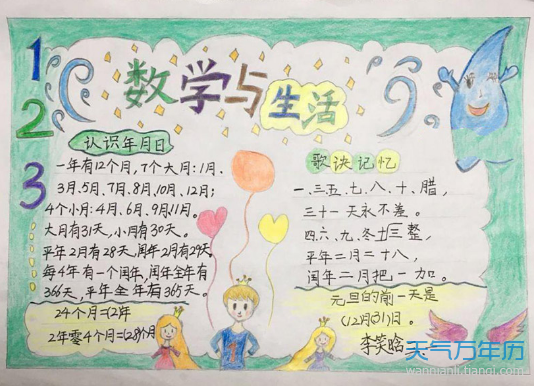 1
2
3
数学与生活
认识年月日
一年有12个月,7个大月:1月、
3月、5月、7月、8月、10月、12月;
4个小月:4月、6月、9月、11月。
大月有31天,小月有30天。
平年2月有28天,闰年2月有29天。
每4年有一个闰年,闰年全年有
366天,平年全年有365天。
24个月=(2)年
2年零4个月=(28)个月
歌诀记忆
一、三、五、七、八、十、腊,
三十一天永不差。
四、六、九、冬三十整,
平年二月二十八,
闰年二月把一加。
元旦的前一天是
(12)月(31)日。
李笑晗
天气万年历
wannianli.tianqi.com